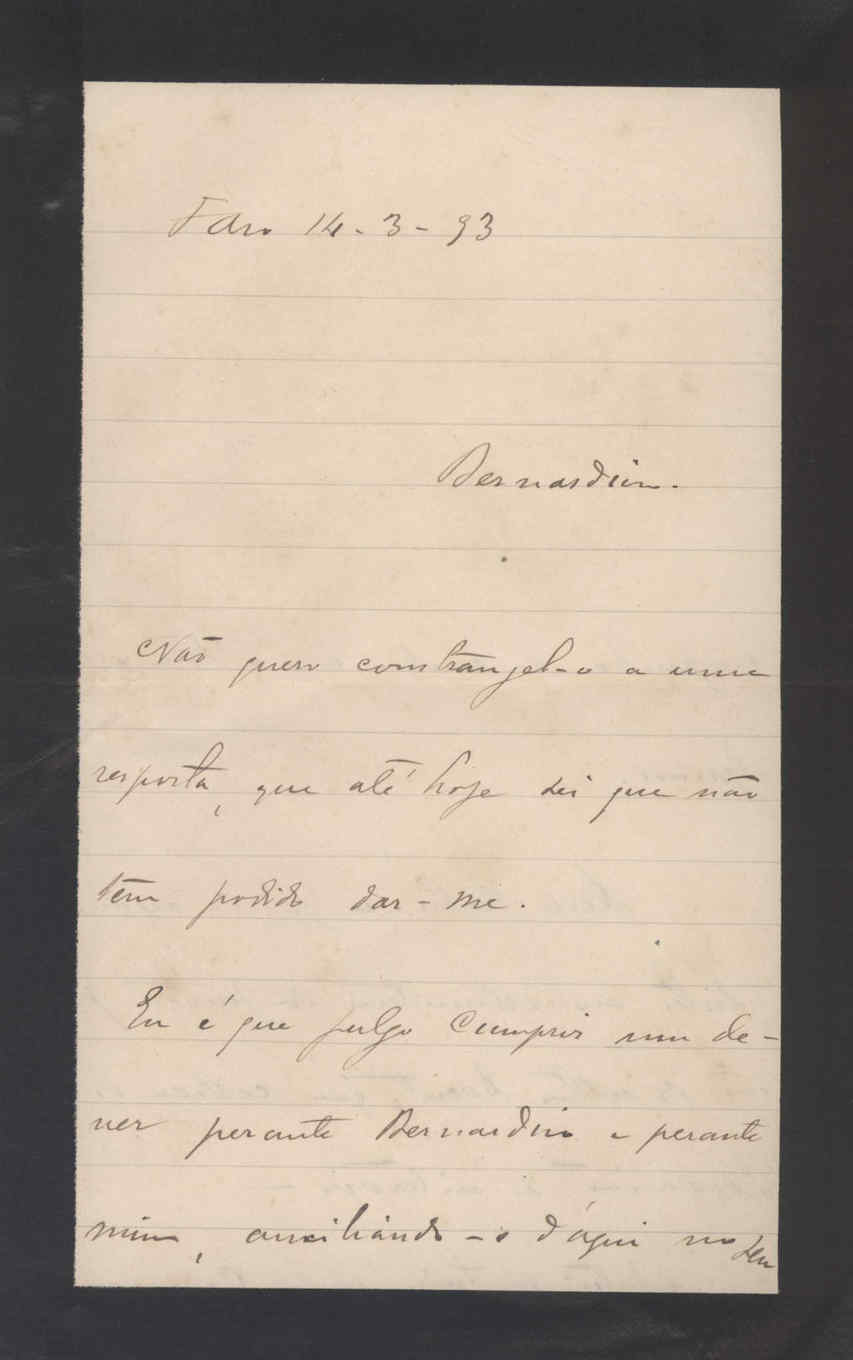 Faro 14-3-93
Bernardino.
Não quero constrangel-o a uma
resposta, que até hoje sei que não
tem podido dar-me.
Eu é que julgo cumprir um de-
ver perante Bernardino e perante
mim, auxiliando-o d'aqui no seu